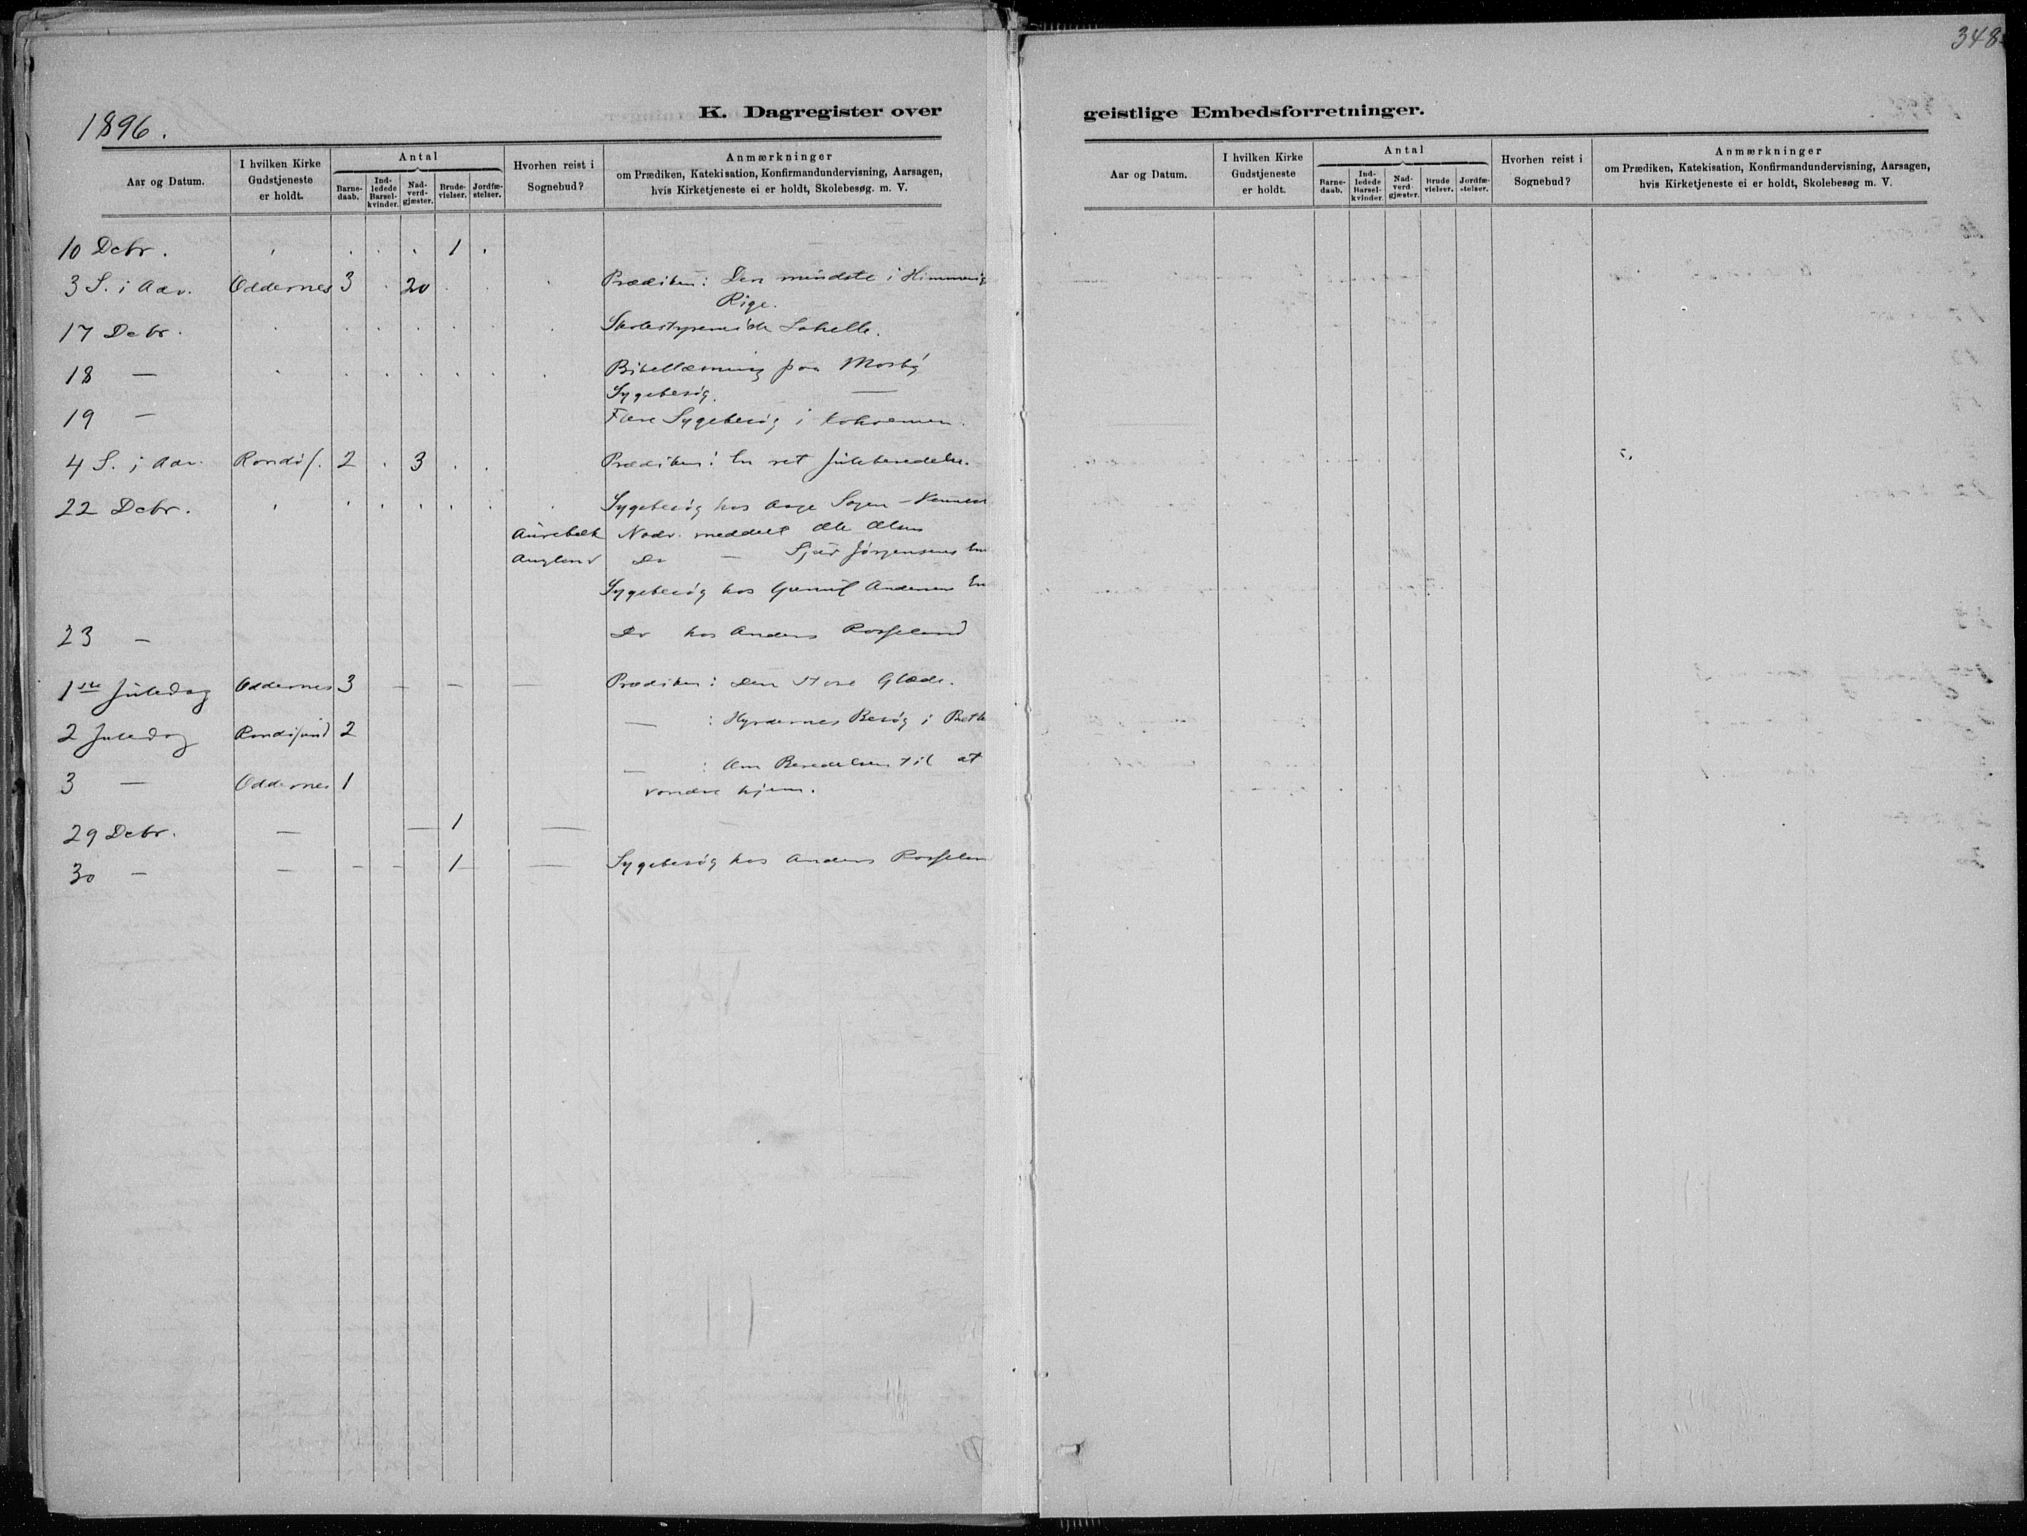 348
1896.
K. Dagregister over
geistlige Embedsforretninger.
Aar og Datum.
I hvilken Kirke
Gudstjeneste
er holdt.
Antal
Barne-
daab.
Ind-
ledede
Barsel-
kvinder.
Nad-
verd-
gjæster.
Brude-
vielser.
Jordfæ-
stelser.
Hvorhen reist i
Sognebud?
Anmærkninger
om Prædiken, Katekisation, Konfirmandundervisning, Aarsagen,
hvis Kirketjeneste ei er holdt, Skolebesøg. m. V.
10 Debr. 1
3 S. i Adv. Oddernes 3 20 Prædiken: Den mindste i Himmerig
Rige.
17 Debr.
18 — Bibellæsning paa Mosby
Sygebesøg. —
19 — Flere Sygebesøg i
4 S. i Adv. Randøs. 2 3 Prædiken: En ret Juleberedelse.
22 Debr. Sygebesøg hos Aage
Nadv. meddelt Ole Olsen
Do —
Sygebesøg hos Andersens
23 — Do hos Anders Rosseland
1ste Juledag Oddernes 3 — — — Prædiken: Den store Glæde.
2 Juledag Randøsund 2 — : Hyrdernes Besøg i Beth
3 — Oddernes 1 — : Om Beredelsen til at
vandre hjem.
29 Debr. — — 1 — —
30 — — — — 1 — Sygebesøg hos Anders Rosselan
Aar og Datum.
I hvilken Kirke
Gudstjeneste
er holdt.
Antal
Barne-
daab.
Ind-
ledede
Barsel-
kvinder.
Nad-
verd-
gjæster.
Brude
vielser.
Jordfæ-
stelser.
Hvorhen reist i
Sognebud?
Anmærkninger
om Prædiken, Katekisation, Konfirmandundervisning, Aarsagen,
hvis Kirketjeneste ei er holdt, Skolebesøg m. V.